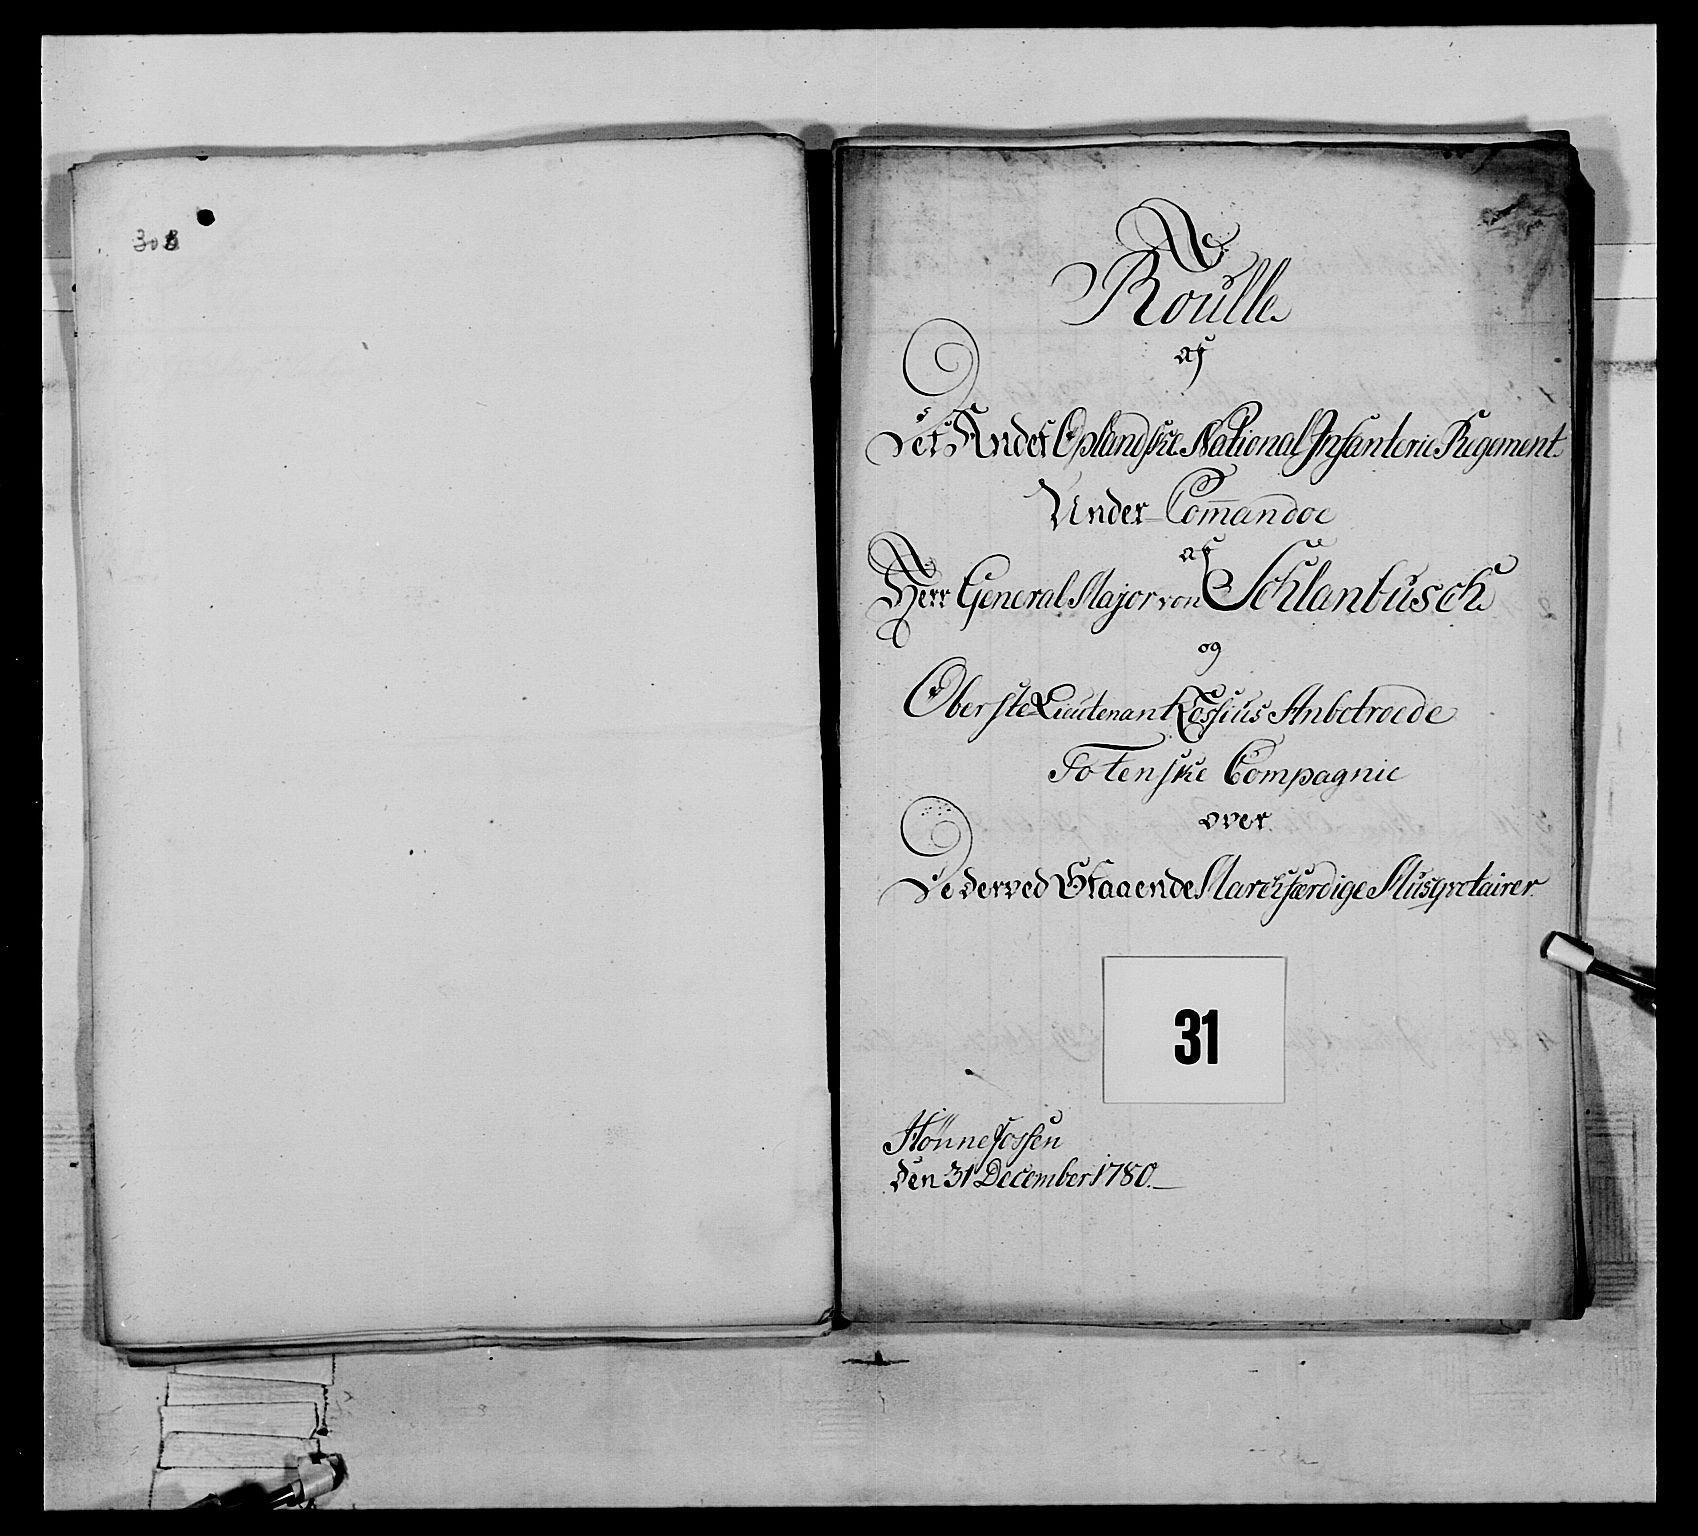 308
Roulle
af
Det Andet Oplandske National Infanterie Regiment
Under Com̅andoe
af
Herr General Major von Schlanbusch
og
Oberste Lieutenant Cossius Anbetroede
Totenske Compagnie
over
De derved Staaende Marchfærdige Musqvetairer
31
Hönnefossen
den 31 December 1780.